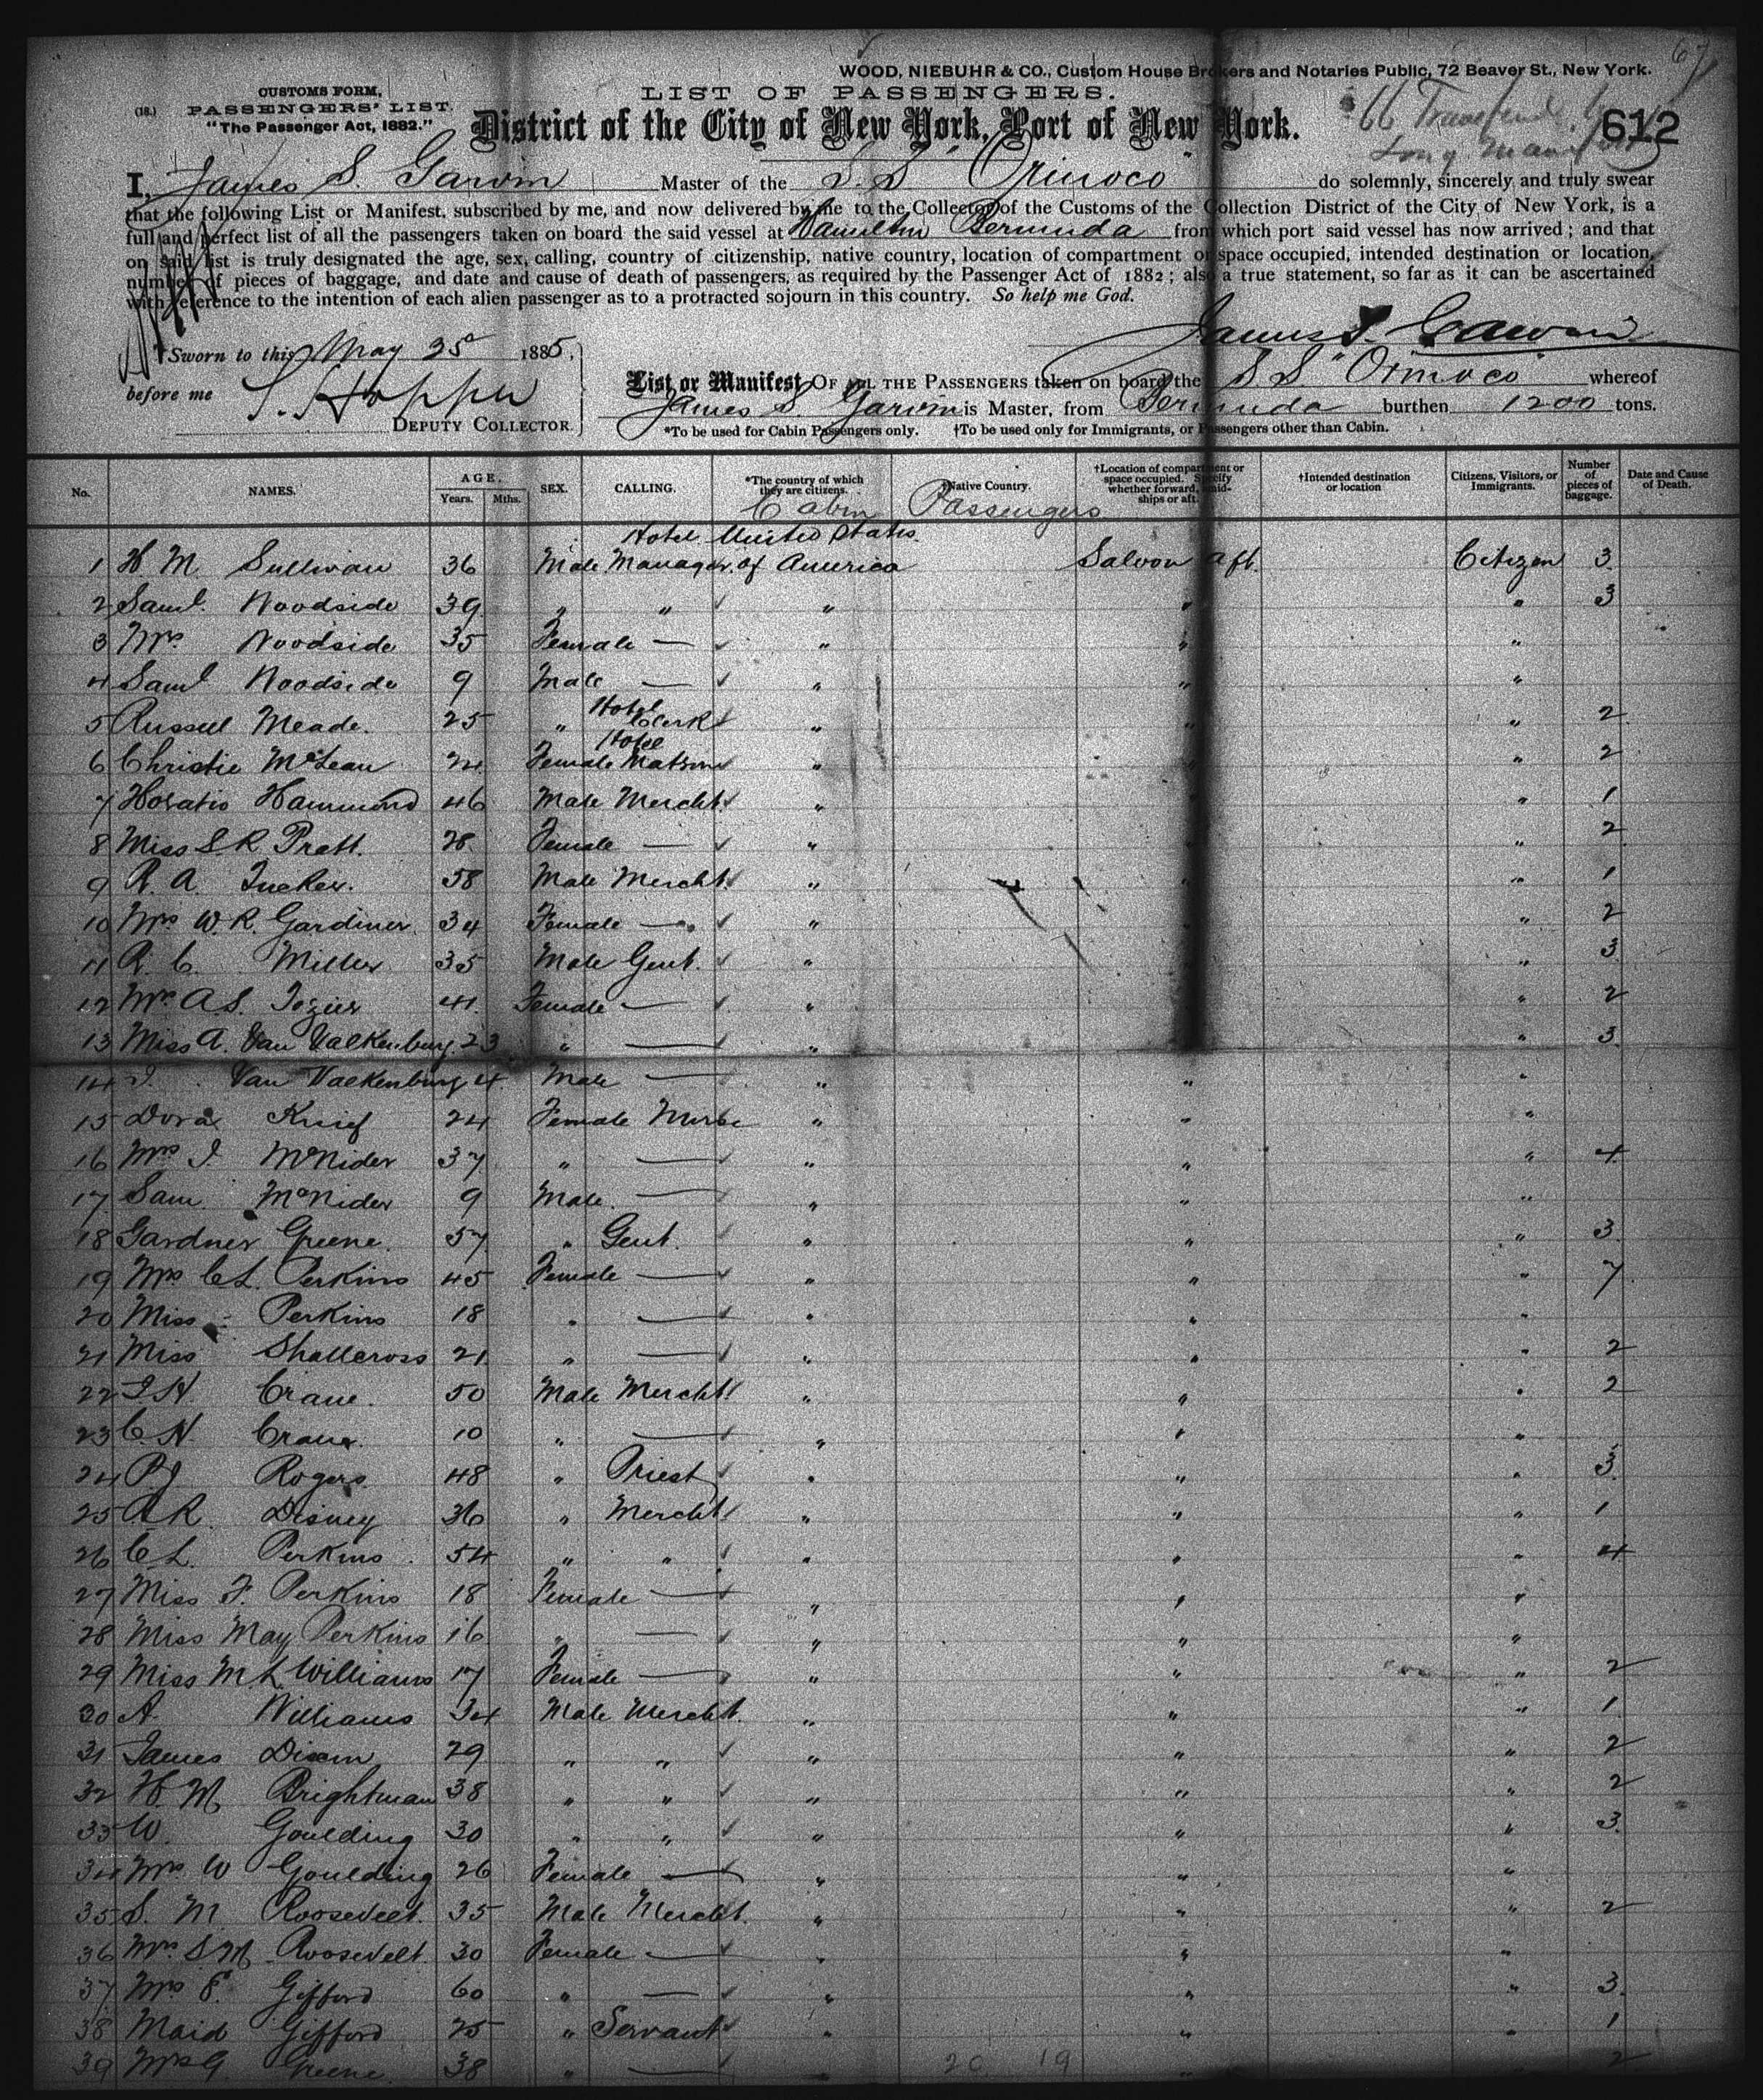 67
WOOD, NIEBUHR & CO., Custom House Brokers and Notaries Public, 72 Beaver St., New York.
(18.) CUSTOMS FORM, PASSENGERS' LIST. "The Passenger Act, 1882."
LIST OF PASSENGERS.
District of the City of New York, Port of New York.
66
612
I, James S. Garvin Master of the S.S "Orinoco" do solemnly, sincerely and truly swear
that the following List or Manifest, subscribed by me, and now delivered by me to the Collector of the Customs of the Collection District of the City of New York, is a
full and perfect list of all the passengers taken on board the said vessel at Hamilton Bermuda from which port said vessel has now arrived; and that
on said list is truly designated the age, sex, calling, country of citizenship, native country, location of compartment or space occupied, intended destination or location,
number of pieces of baggage, and date and cause of death of passengers, as required by the Passenger Act of 1882; also a true statement, so far as it can be ascertained
with reference to the intention of each alien passenger as to a protracted sojourn in this country. So help me God.
James S. Garvin
Sworn to this May 25 1885,
before me
DEPUTY COLLECTOR.
List or Manifest OF ALL THE PASSENGERS taken on board the S.S. "Orinoco" whereof
James S. Garvin is Master, from Bermuda burthen 1200 tons.
*To be used for Cabin Passengers only. †To be used only for Immigrants, or Passengers other than Cabin.
No. NAMES. AGE. Years. Mths. SEX. CALLING. *The country of which they are citizens. †Native Country. †Location of compartment or space occupied. Specify whether forward, amidships or aft. †Intended destination or location Citizens, Visitors, or Immigrants. Number of pieces of baggage. Date and Cause of Death.
Cabin Passengers
1 H M Sullivan 36 Male Hotel Manager. United States of America Saloon aft. Citizen 3
2 Saml. Woodside 39 " " " " " 3
3 Mrs Woodside 35 Female — " " "
4 Saml Woodside 9 Male — " " "
5 Russell Meade. 25 " Hotel Clerk " " " 2
6 Christie McLean 24 Female Hotel Matron " " " 2
7 Horatio Hammond 46 Male Mercht. " " " 1
8 Miss S. R. Pratt. 28 Female — " " " 2
9 R. A. Tucker. 58 Male Mercht. " " " 1
10 Mrs W. R. Gardiner. 34 Female — " " " 2
11 R. C. Miller 35 Male Gent. " " " 3
12 Mrs A S. Tozier 41 Female — " " " 2
13 Miss A. Van Valkenburg. 23 " — " " " 3
14 Van Valkenburg 4 Male — " " "
15 Dora Knief 24 Female Nurse " " "
16 Mrs J. McNider 37 " — " " " 4
17 Sam McNider 9 Male. — " " "
18 Gardner Greene. 57 " Gent. " " " 3
19 Mrs C L. Perkins 45 Female — " " " 7
20 Miss - Perkins 18 " — " " "
21 Miss Shallcross 21 " — " " " 2
22 J. H. Crane. 50 Male Mercht. " " " 2
23 C. H. Crane. 10 " — " " "
24 P J Rogers. 48 " Priest " " " 3
25 A R. Disney 36 " Mercht " " " 1
26 C L. Perkins 54 " " " " " 4
27 Miss F. Perkins 18 Female — " " "
28 Miss May Perkins 16 " — " " "
29 Miss M. L. Williams 17 Female — " " " 2
30 A. Williams 34 Male Mercht. " " " 1
31 James Dixon 29 " " " " " 2
32 H. M Brightman 38 " " " " " 2
33 W. Goulding 30 " " " " " 3
34 Mrs W Goulding 26 Female — " " "
35 S. M. Roosevelt. 35 Male Mercht. " " " 2
36 Mrs S M. Roosevelt. 30 Female — " " "
37 Mrs Gifford 60 " — " " " 3
38 Maid Gifford 25 " Servant " " " 1
39 Mrs G. Greene. 38 " — " " " 2
20 19